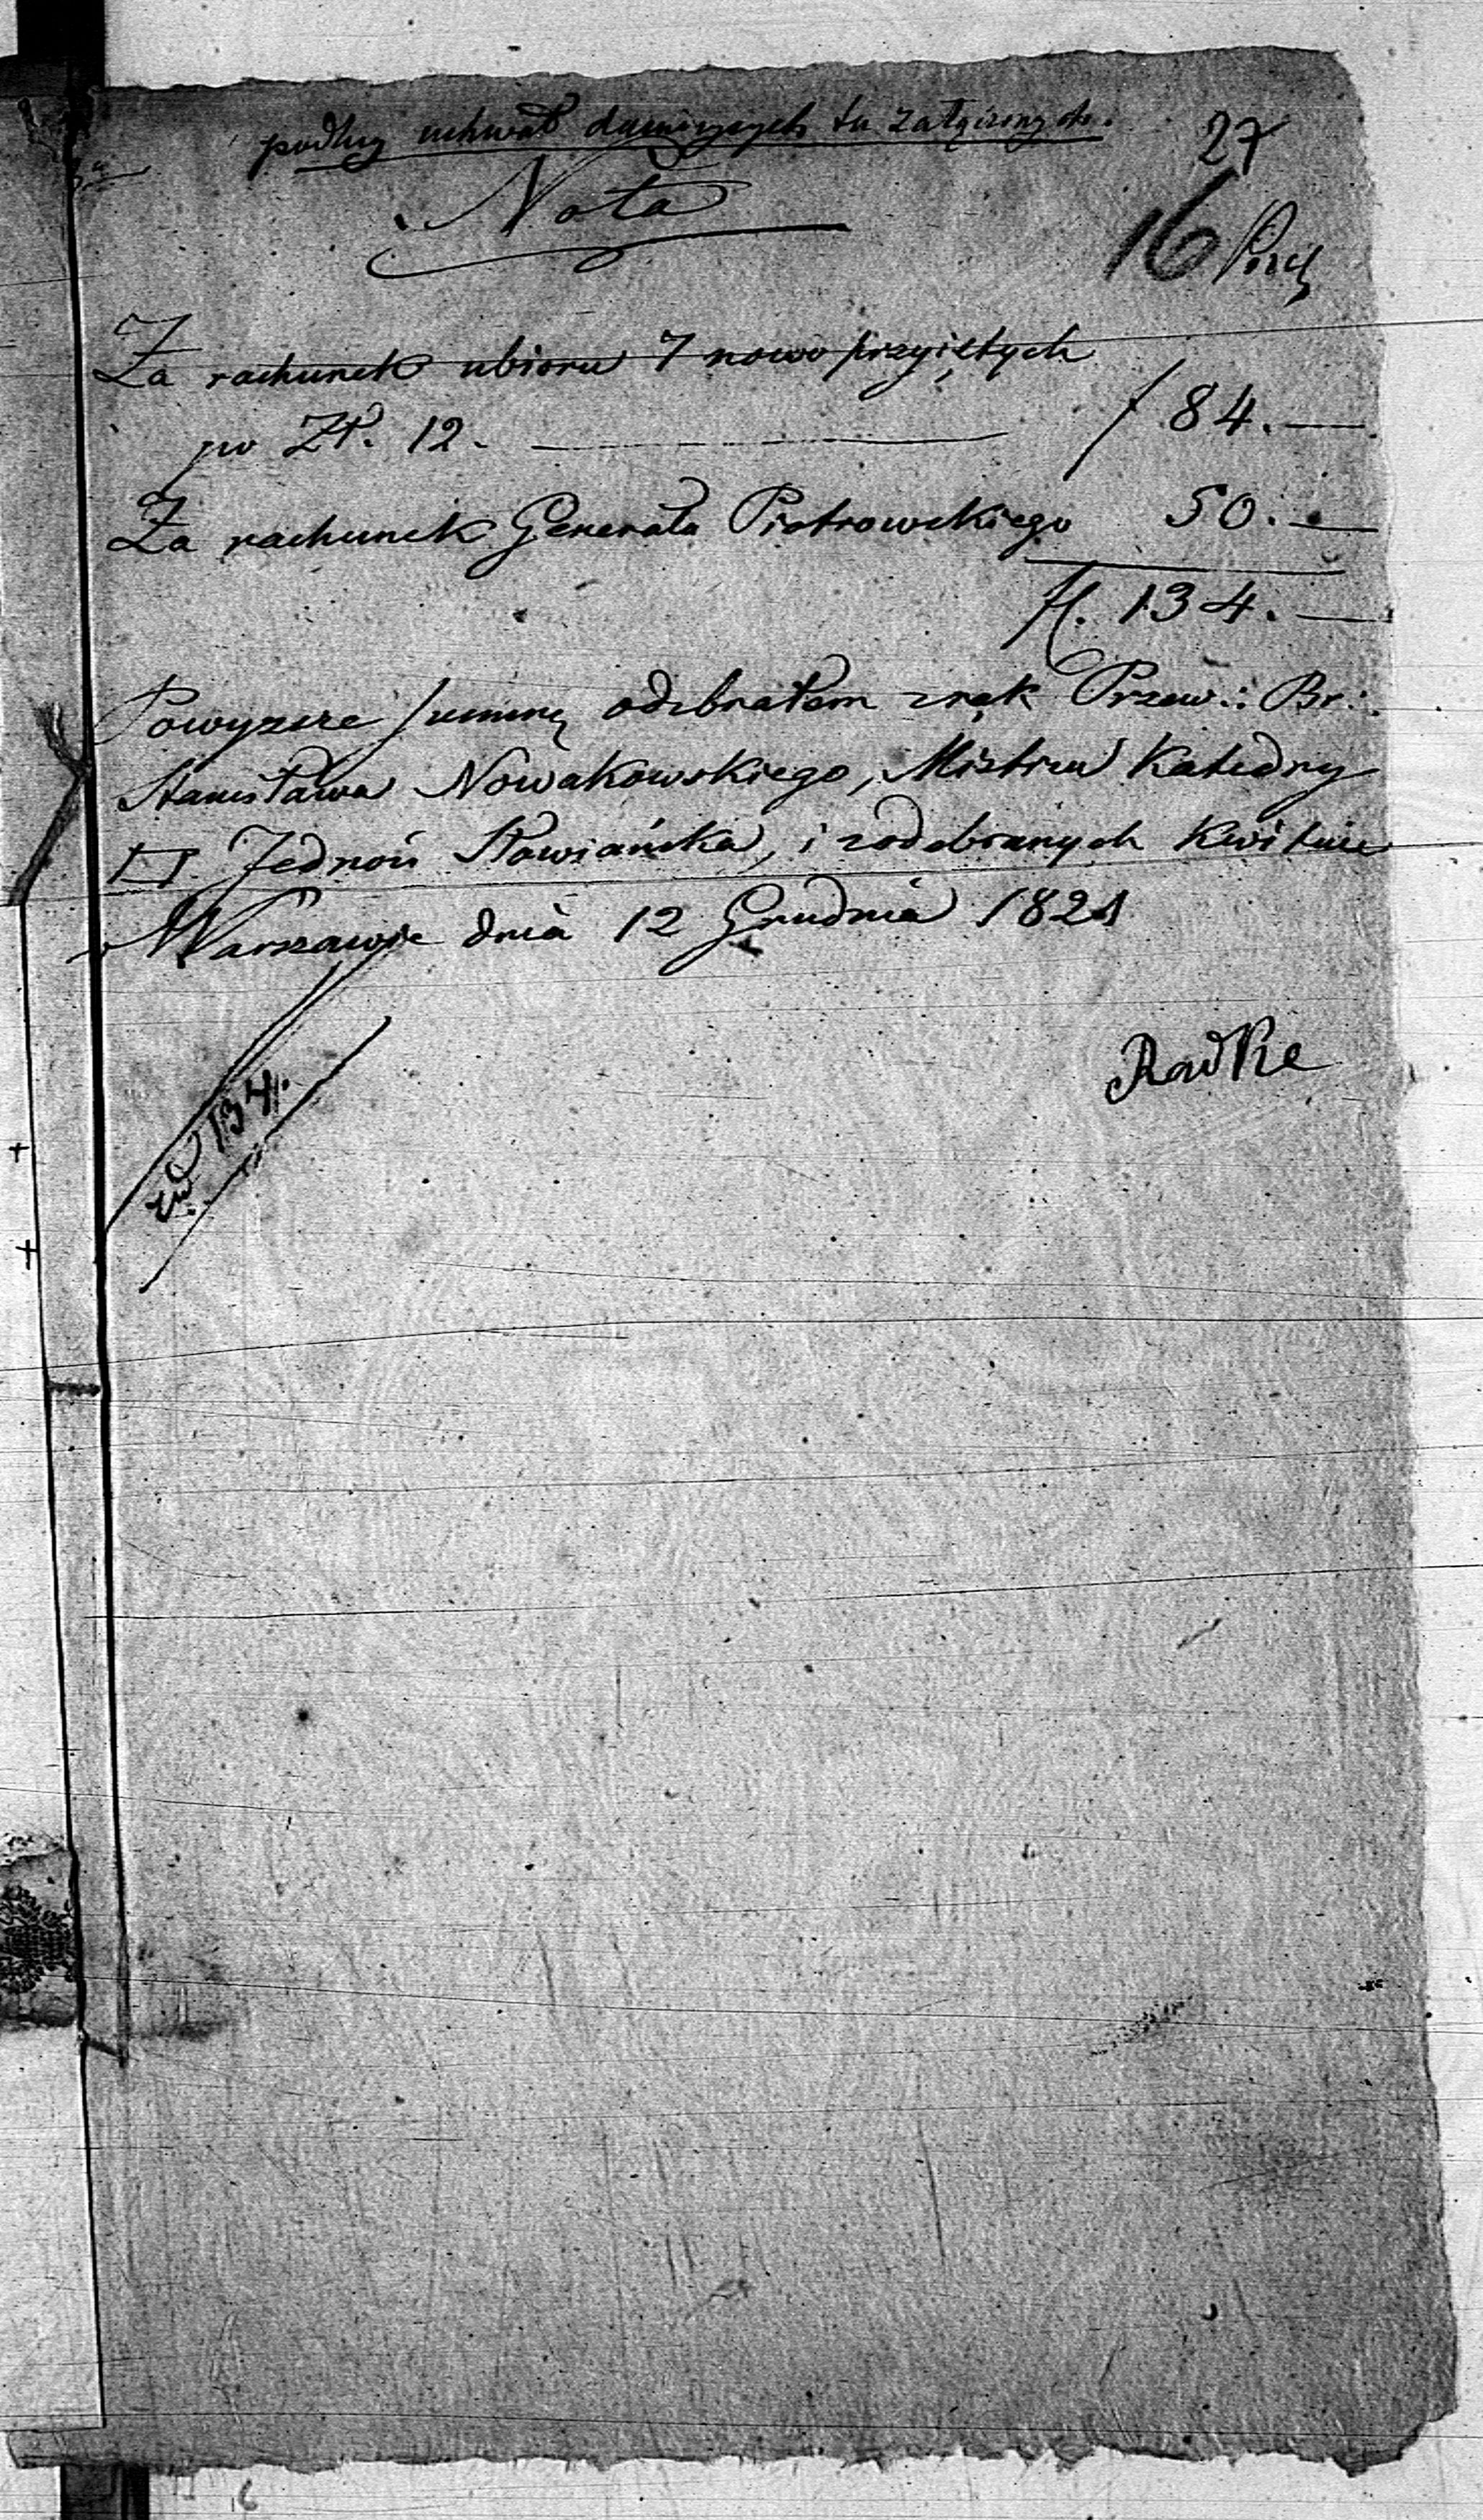 podług uchwał tu załączonych.
27
Nota
16
Za rachunek ubioru 7 nowo przyiętych
po Zł. 12. f 84. —
Za rachunek Generała Piotrowskiego 50. —
fl. 134. —
Powyzsze summę odebrałem z rąk Przew:: Br::
Stanisława Nowakowskiego, Mistrza Katedry
▭. Jednoś Słowiańska, i z odebranych kwituie
w Warszawie dnia 12 Grudnia 1821
Radke
134.